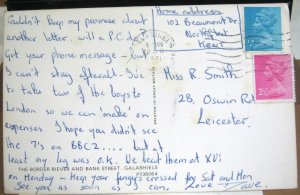 Couldn't keep my promise about
another letter - will a P.C. do?
Got your phone message - but
I can't stay afterall. I've
to take two of the boys to
London so we can 'make' on
expenses. I hope you didn't see
the 7's on BBC2.... but at
least my leg was O.K. We beat them at XVs
on Monday - Keep your fingers crossed for Sat and Mon
See you as soon as I can. Love
Home address
102 Beaumont Dr
Northfleet
Kent
Miss R. Smith
28, Oswin Rd
Leicester.
THE BORDER REIVER AND BANK STREET, GALASHIELS